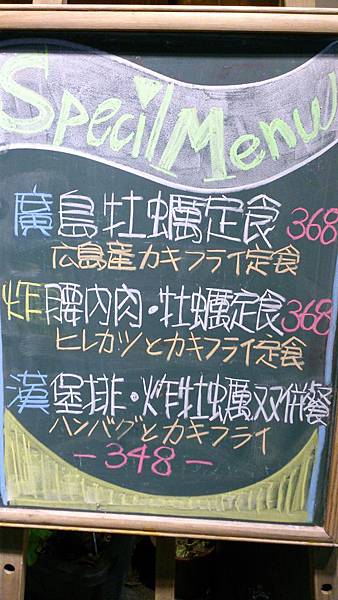 Specil Menu
廣島牡蠣定食 368
広島産カキフライ定食
炸腰内肉・牡蠣定食 368
ヒレカツとカキフライ定食
漢堡排・炸牡蠣双併餐
ハンバグとカキフライ
-348-